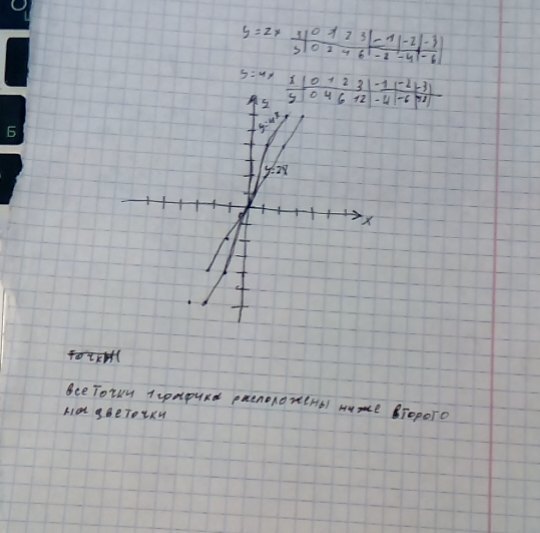 y=2x
x | 0 1 2 3 | -1 | -2 | -3 |
y | 0 2 4 6 | -2 | -4 | -6 |
y=4x
x | 0 1 2 3 | -1 | -2 | -3 |
y | 0 4 6 12 | -4 | -6
y
y=4x
y=2x
x
точки
все точки 1 графика расположены ниже второго
Б